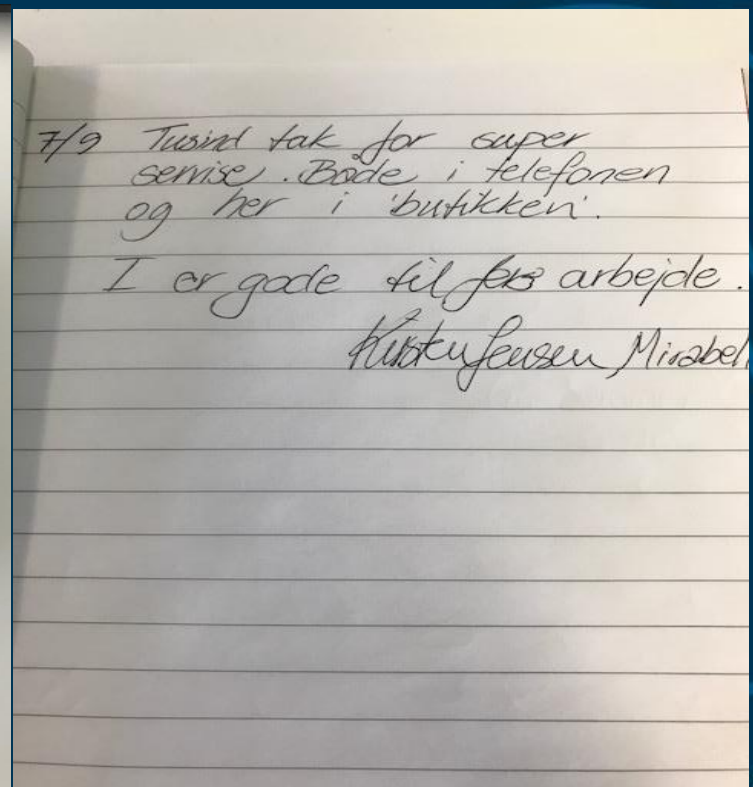 7/9 Tusind tak for super
servise. Både i telefonen
og her i 'butikken'.
I er gode til jers arbejde.
Kirsten Jensen, Mirabel